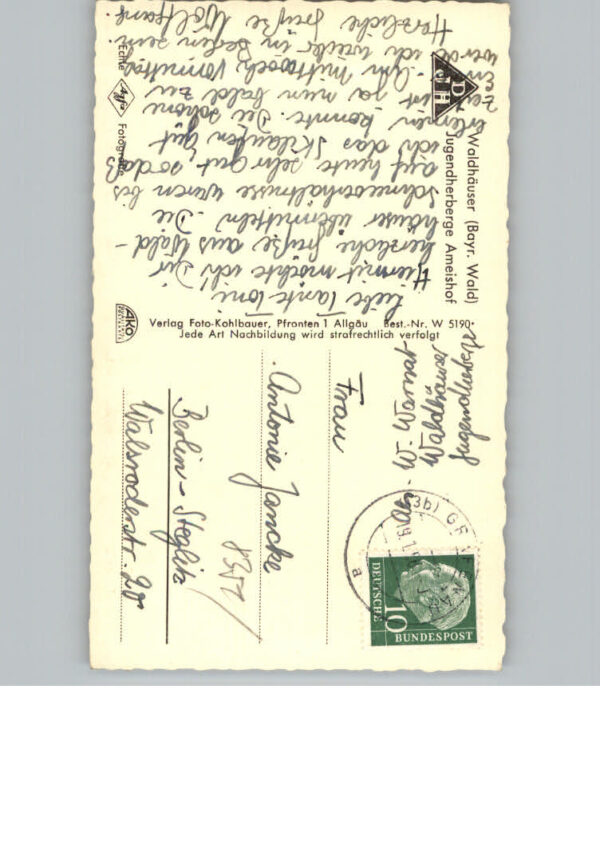 Waldhäuser (Bayr. Wald)
Jugendherberge Ameishof
DJH
Liebe Tante Toni
Hiermit möchte ich Dir
herzliche Grüße aus Wald-
häuser übermitteln. Die
Schneeverhältnisse waren bis
auf heute sehr gut, so daß
ich das Skilaufen gut
erlernen konnte. Die schöne
Zeit ist ja nun bald zu
Mittwoch Vormittag
werde ich wieder in Berlin sein.
Herzliche Grüße Wolfgang.
Echte
Agfa
Fotografie
AKO
Verlag Foto-Kohlbauer, Pfronten 1 Allgäu Best.-Nr. W 5190
Jede Art Nachbildung wird strafrechtlich verfolgt
Waldhäuser
Jugendherberge
Frau
Antonie Jancke
Berlin-Steglitz
Walsroderstr. 20
(13b) GRAFENAU
B
DEUTSCHE
BUNDESPOST
10